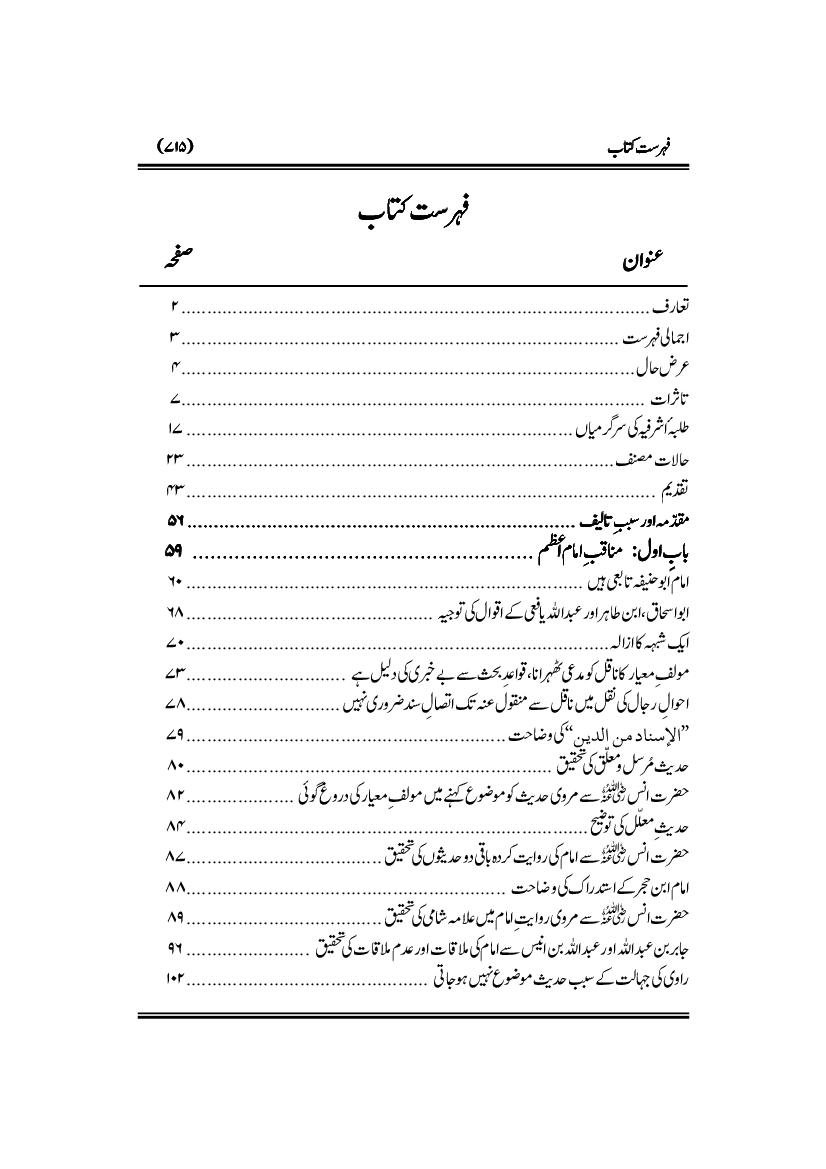 فہرست کتاب (۷۱۵)
فہرست کتاب
عنوان صفحہ
تعارف ........................................ ۲
اجمالی فہرست ........................................ ۳
عرض حال ........................................ ۴
تاثرات ........................................ ۷
طلبۂ اشرفیہ کی سرگرمیاں ........................................ ۱۷
حالات مصنف ........................................ ۲۳
تقدیم ........................................ ۴۳
مقدّمہ اور سببِ تالیف ........................................ ۵۶
بابِ اول: مناقبِ امام اعظم ........................................ ۵۹
امام ابوحنیفہ تابعی ہیں ........................................ ۶۰
ابواسحاق، ابن طاہر اور عبد اللہ یافعی کے اقوال کی توجیہ ........................................ ۶۸
ایک شبہہ کا ازالہ ........................................ ۷۰
مولفِ معیار کا ناقل کو مدعی ٹھہرانا، قواعدِ بحث سے بے خبری کی دلیل ہے ........................................ ۷۳
احوالِ رجال کی نقل میں ناقل سے منقول عنہ تک اتصالِ سند ضروری نہیں ........................................ ۷۸
”الإسناد من الدین“ کی وضاحت ........................................ ۷۹
حدیث مُرسل و معلّق کی تحقیق ........................................ ۸۰
حضرت انس رضی اللہ عنہ سے مروی حدیث کو موضوع کہنے میں مولفِ معیار کی دروغ گوئی ........................................ ۸۲
حدیثِ معلّل کی توضیح ........................................ ۸۴
حضرت انس رضی اللہ عنہ سے امام کی روایت کردہ باقی دو حدیثوں کی تحقیق ........................................ ۸۷
امام ابن حجر کے استدراک کی وضاحت ........................................ ۸۸
حضرت انس رضی اللہ عنہ سے مروی روایتِ امام میں علامہ شامی کی تحقیق ........................................ ۸۹
جابر بن عبد اللہ اور عبد اللہ بن انیس سے امام کی ملاقات اور عدم ملاقات کی تحقیق ........................................ ۹۶
راوی کی جہالت کے سبب حدیث موضوع نہیں ہو جاتی ........................................ ۱۰۲